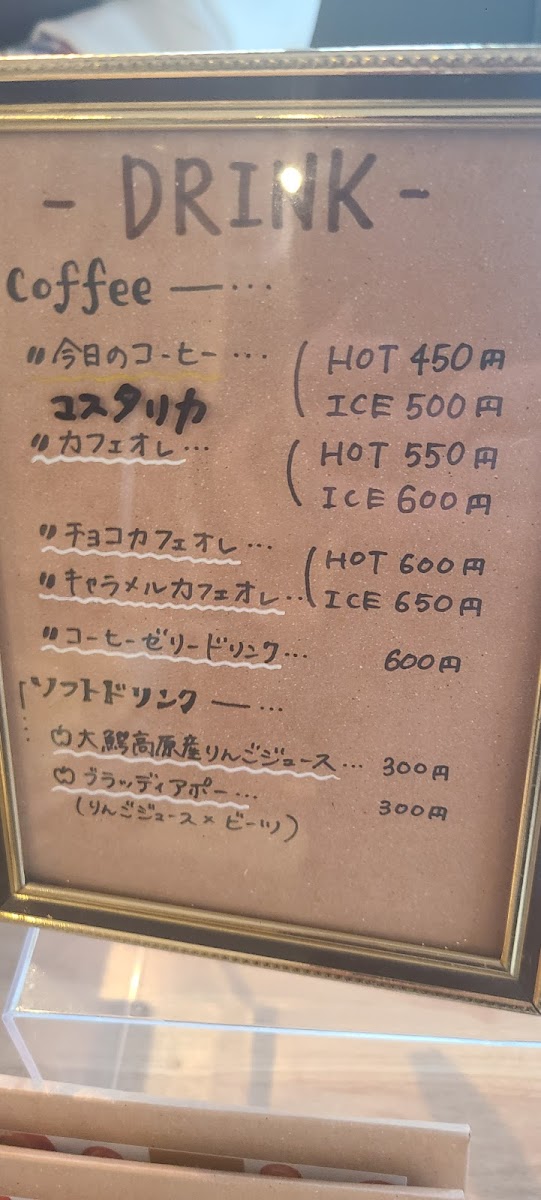 - DRINK -
Coffee —…
〃今日のコーヒー… HOT 450円
コスタリカ ICE 500円
〃カフェオレ… HOT 550円
ICE 600円
〃チョコカフェオレ… HOT 600円
〃キャラメルカフェオレ… ICE 650円
〃コーヒーゼリードリンク… 600円
ソフトドリンク —…
大鰐高原産りんごジュース… 300円
ブラッディアポー… 300円
(りんごジュース×ビーツ)